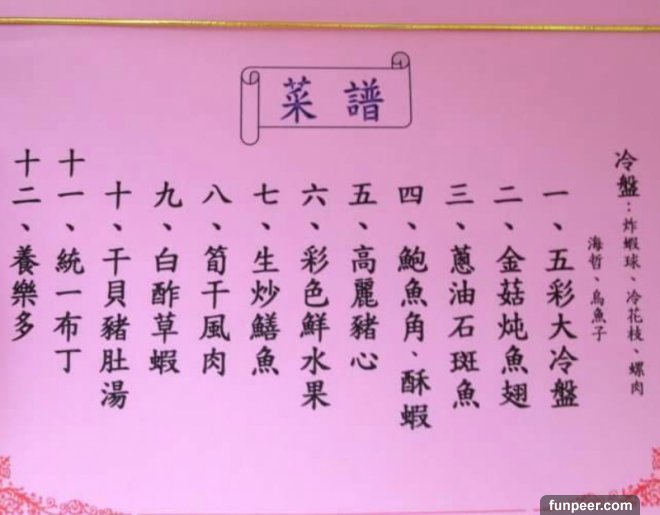 菜譜
冷盤：炸蝦球、冷花枝、螺肉
海哲、烏魚子
一、五彩大冷盤
二、金菇炖魚翅
三、蔥油石斑魚
四、鮑魚角、酥蝦
五、高麗豬心
六、彩色鮮水果
七、生炒鱔魚
八、筍干風肉
九、白酢草蝦
十、干貝豬肚湯
十一、統一布丁
十二、養樂多
funpeer.com